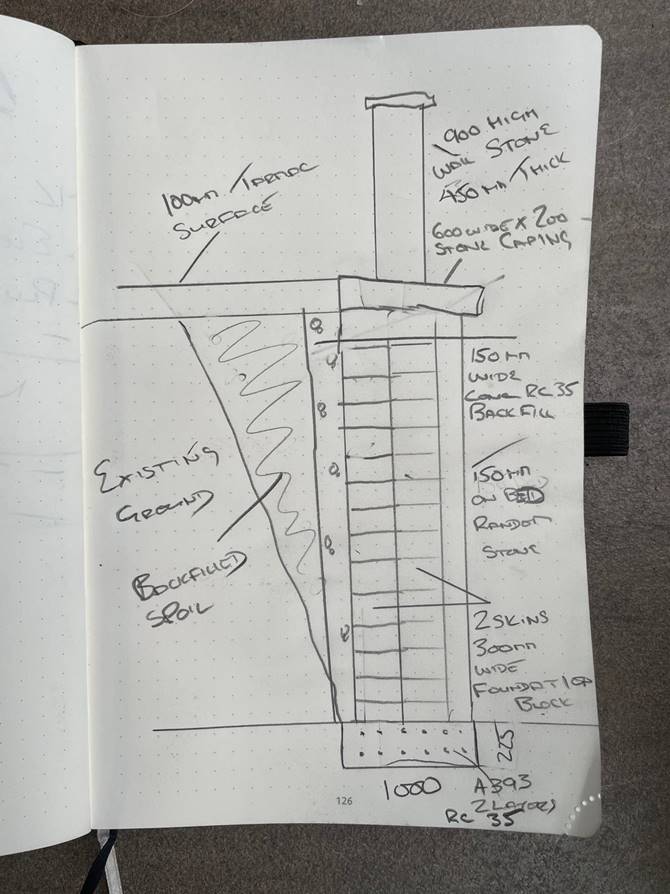 900 HIGH
WALL STONE
450mm THICK
100mm TARMAC
SURFACE
600 WIDE X 200
STONE CAPING
150mm
WIDE
CONC RC 35
BACKFILL
EXISTING
GROUND
150mm
ON BED
RANDOM
STONE
BACKFILLED
SPOIL
2 SKINS
300mm
WIDE
FOUNDATION
BLOCK
225
1000
A393
2 LAYERS
RC 35
126